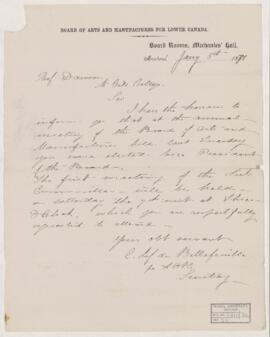 BOARD OF ARTS AND MANUFACTURES FOR LOWER CANADA.
Board Rooms, Mechanics' Hall,
Montreal, Jany 5th 1871
Prof Dawson
McGill College
Sir
I have the honor to
inform you that at the annual
meeting of the Board of Arts and
Manufactures held last Tuesday
you were elected Vice President
of the Board.
The first meeting of the Sub
Committee will be held
on Saturday the 7 inst at three
O'Clock, which you are respectfully
requested to attend.
Your obt servant
E. de Bellefeuille
Secretary